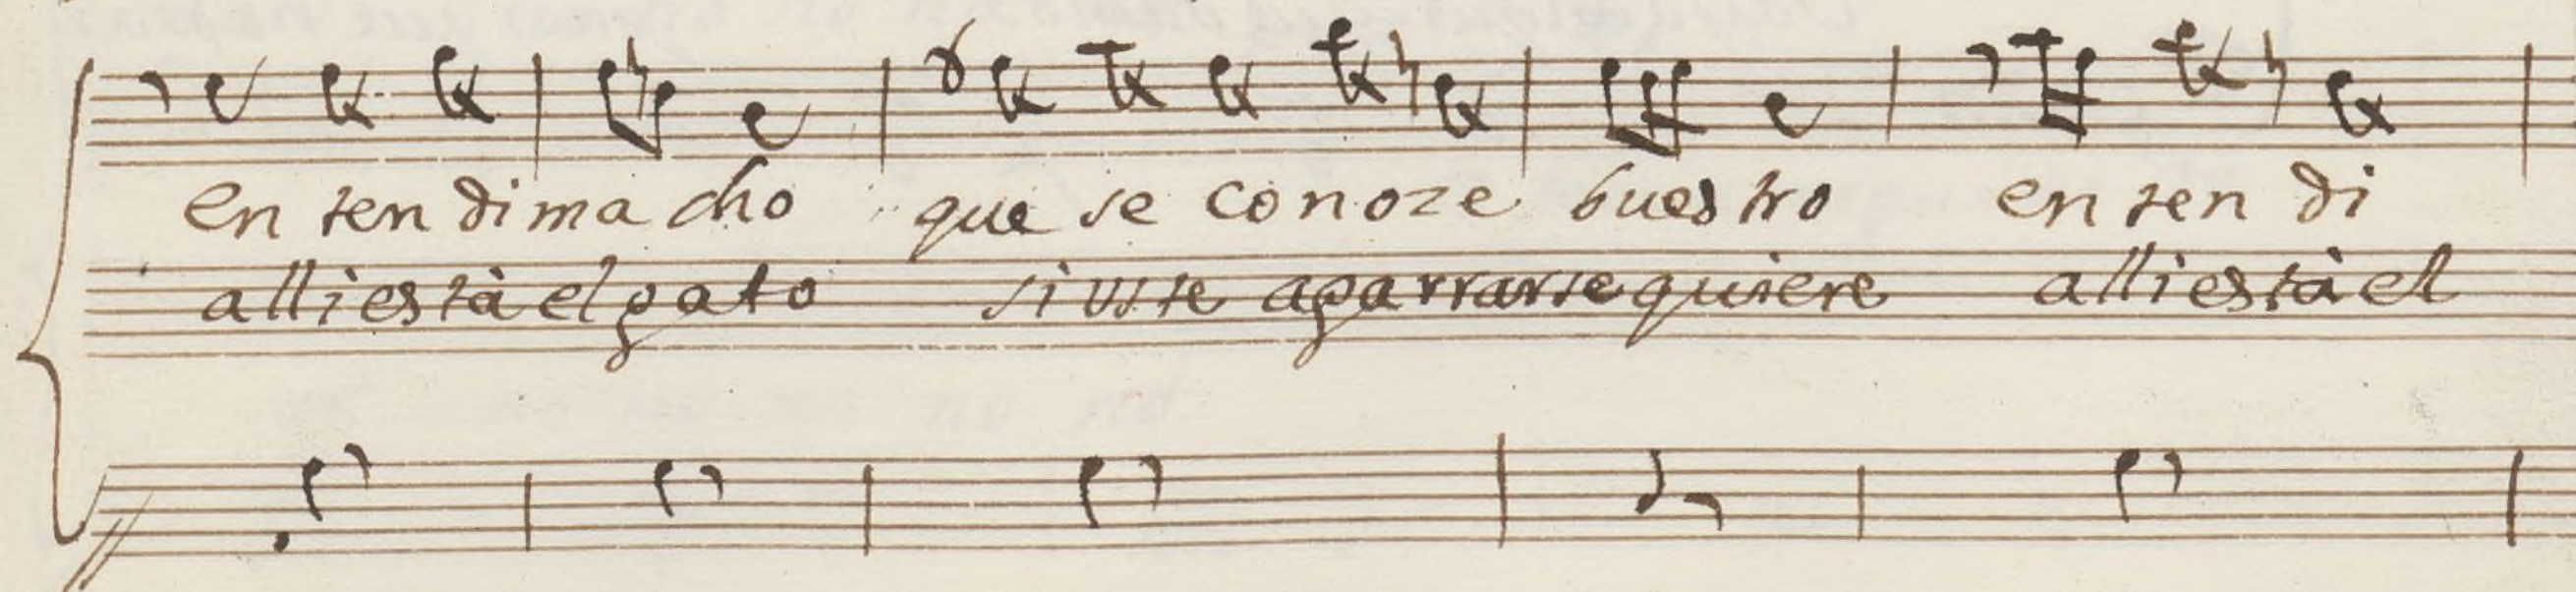 en ten di ma cho que se co no ze bues tro en ten di
alli està el gato si uste agarrarse quiere alli està el